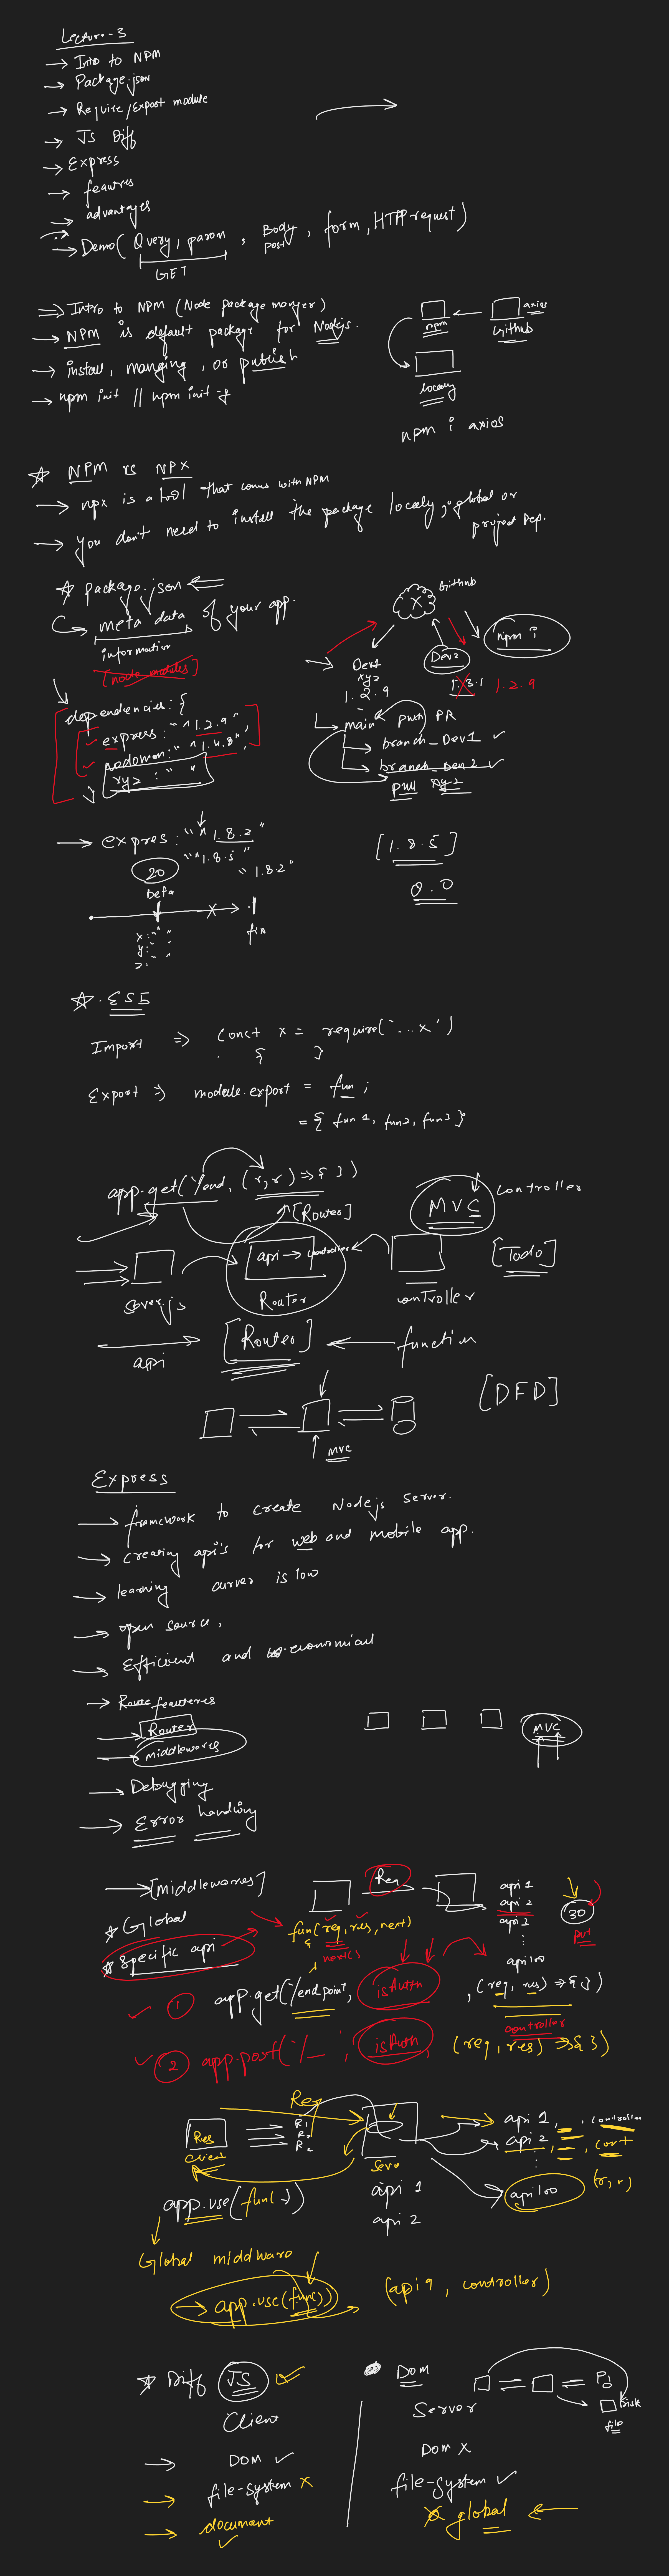 Lecture-3
→ Intro to NPM
→ Package.json
→ Require/Export module
→ JS Diff
→ Express
→ features
→ advantages
→ Demo( Query, param, Body, form, HTTP request)
GET
post
⇒ Intro to NPM (Node package manger)
→ NPM is default package for Nodejs.
→ install, manging, or publish
→ npm init || npm init -y
npm
axios
Github
locally
npm i axios
☆ NPM vs NPX
→ npx is a tool that coms with NPM
→ you don't need to install the package localy, global or
project Dep.
☆ package.json
meta data of your app.
information
[node modules]
dependencies: {
express: "^1.2.9",
nodemon: "^1.4.8",
xyz : " "
}
Github
X
npm i
Dev1
xyz
1.2.9
Dev2
1.3.1
1.2.9
main
push PR
branch_Dev1 ✓
branch_Dev2 ✓
pull xyz
→ expres: "^1.8.2"
"^1.8.5"
"1.8.2"
[1.8.5]
0.0
20
beta
x: " "
y: " "
z:
fix
☆ . ES5
Import ⇒ const x = require('...x')
{ }
Export ⇒ module.export = fun ;
= { fun1, fun2, fun3 }
app.get('/end, (r,r) => { })
[Router]
MVC
controller
server.js
api → controller
Router
controller
[Todo]
api
[Router]
← function
[DFD]
mvc
Express
→ framework to create Nodejs server.
→ creating api's for web and mobile app.
→ learning curves is low
→ open source,
→ Efficient and economical
→ Route features
→ Router
→ middlewares
MVC
→ Debugging
→ Error handling
→ [middlewares]
☆ Global
☆ Specific api
Req
fun(req, res, next)
{
next()
}
api 1
api 2
api 3
⋮
api100
30
put
✓ 1 app.get('/endpoint, isAuth, (req, res) => { })
controller
✓ 2 app.post('/_', isAuth, (req, res) => { })
Req
Res
client
R1
R2
Serve
api 1
api 2
api 1, , controller
api 2, , cont
⋮
api100 (r, r)
app.use(func)
Global middware
→ app.use(func))
(api 9, controller)
☆ Diff JS ✓
Dom
Disk
file
Client
Server
→ DOM ✓
DOM X
→ file-system X
file-system ✓
→ document ✓
global ←